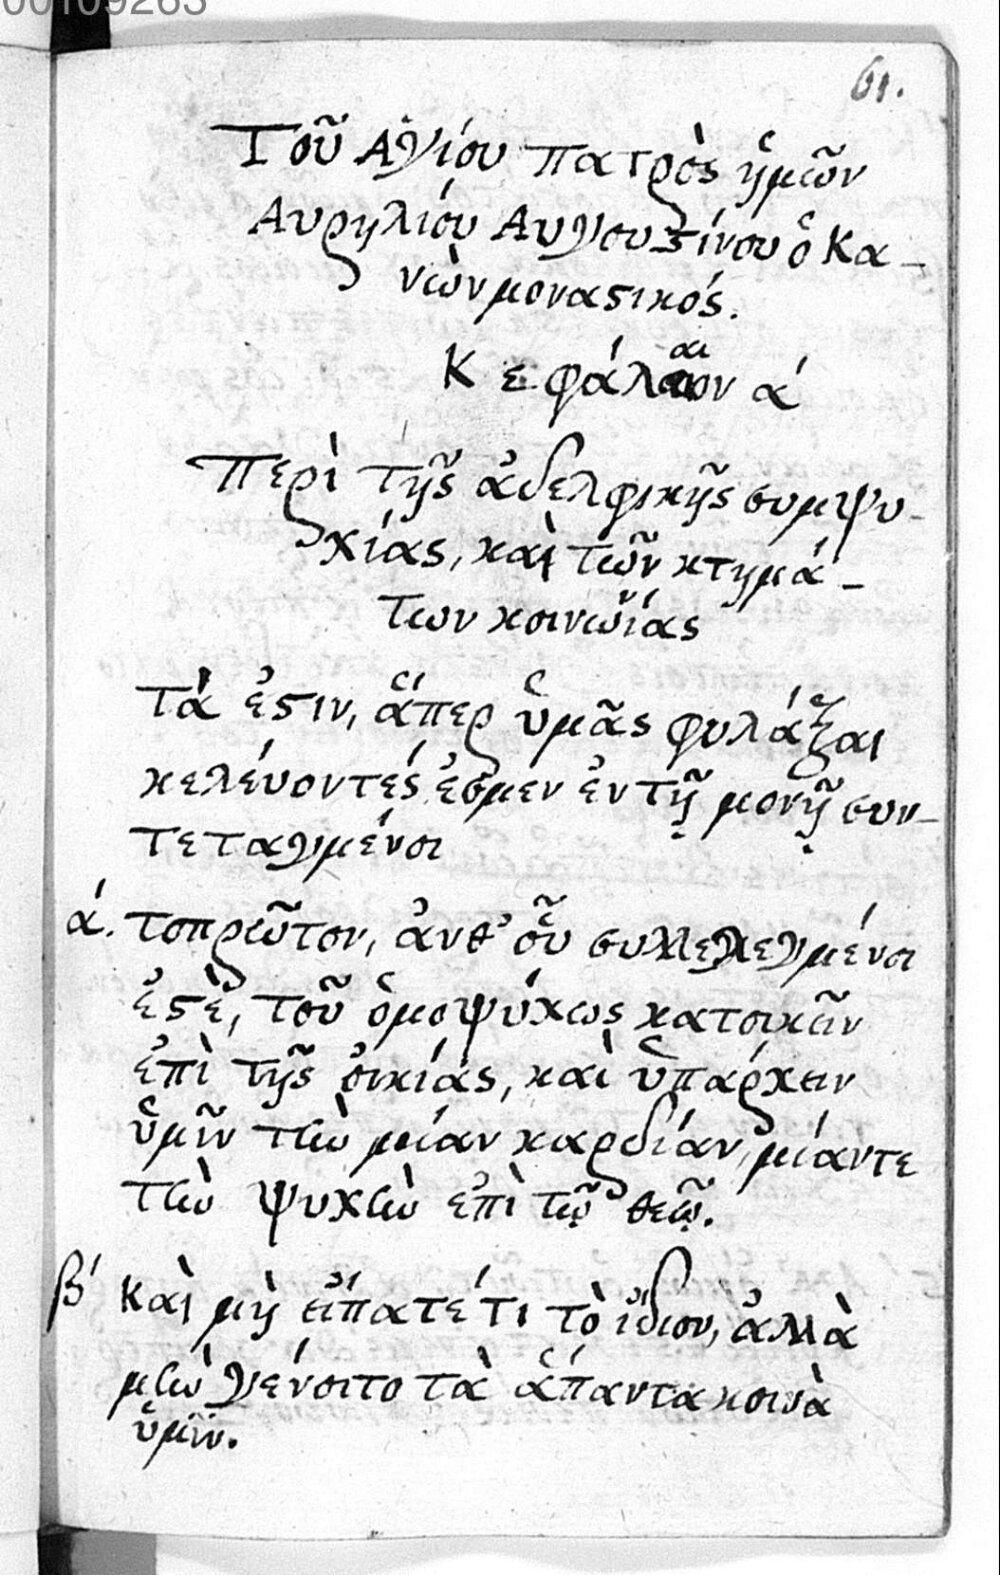 00109263
61.
Τοῦ Ἁγίου Πατρὸς ἡμῶν
Αυρηλίου Αυγουϛίνου ὁ Κα-
νὼν μοναϛικός.
Κεφάλαιον ά
Περὶ τῆς ἀδελφικῆς συμψυ-
χίας, καὶ τῶν κτημά-
των κοινωνίας
Τὰ ἐϛιν, ἅπερ ὑμᾶς φυλάξαι
κελέυοντές ἐσμεν ἐν τῇ μονῇ συν-
τεταγμένοι
ά. τοπρῶτον, ἀνθ' οὗ συλλελεγμένοι
ἐϛὲ, τοῦ ὁμοψύχως κατοικεῖν
ἐπὶ τῆς οἰκίας, καὶ ὑπάρχειν
ὑμῖν τὴν μίαν καρδίαν, μίαντε
τὴν ψυχὴν ἐπὶ τῷ θεῷ.
β' Καὶ μὴ εἴπατέ τι τὸ ἴδιον, ἀλλὰ
μὴν γένοιτο τὰ ἅπαντα κοινὰ
ὑμῖν.